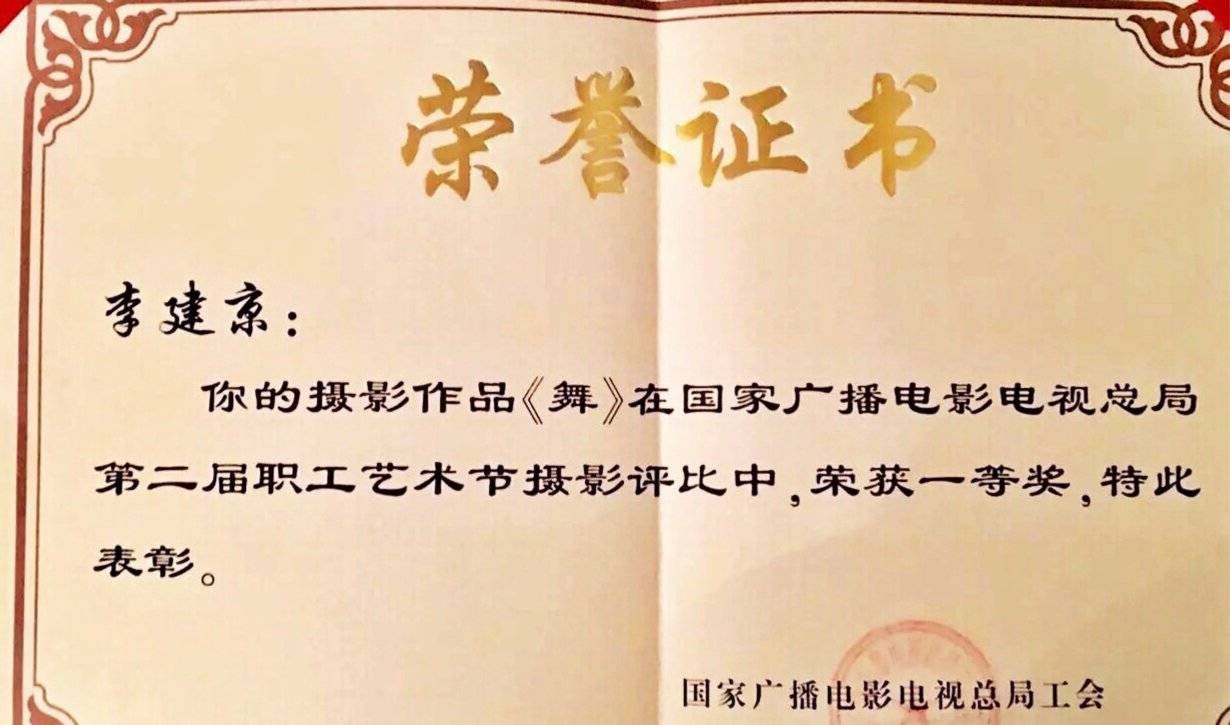 荣誉证书
李建京：
你的摄影作品《舞》在国家广播电影电视总局
第二届职工艺术节摄影评比中，荣获一等奖，特此
表彰。
国家广播电影电视总局工会